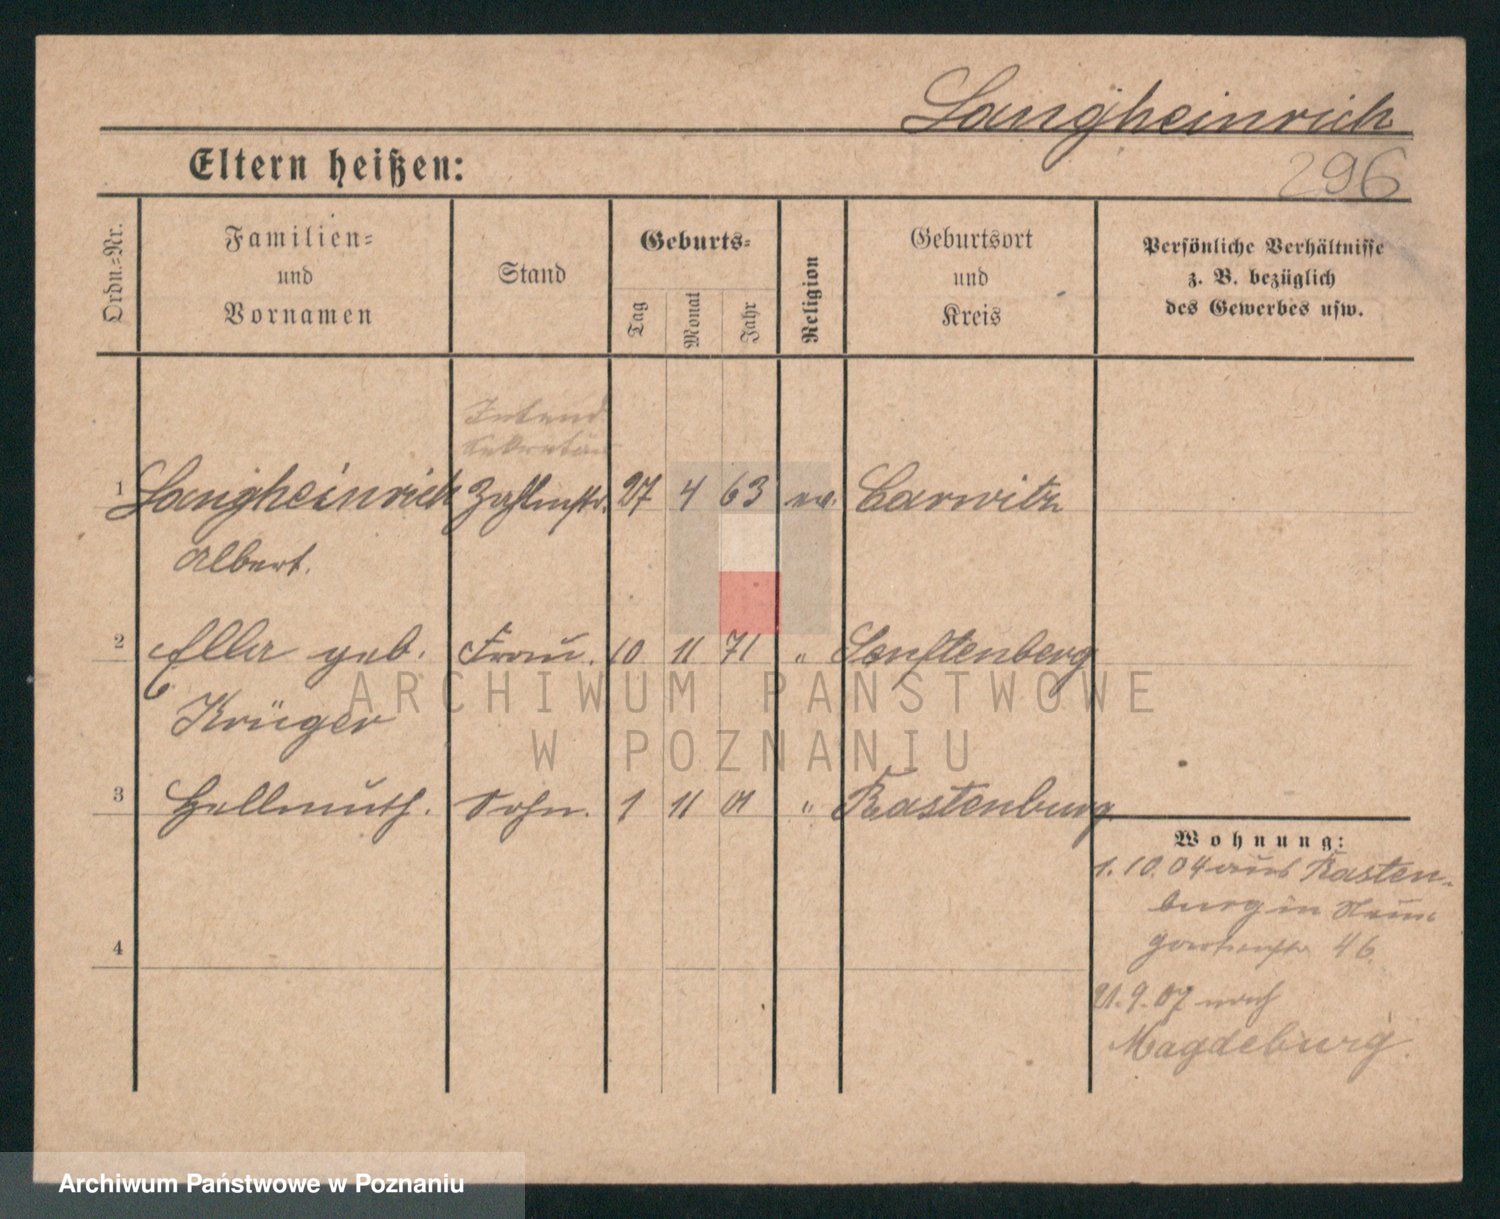 Langheinrich
Eltern heißen:
296
Ordn.-Nr.
Familien-
und
Vornamen
Stand
Geburts-
Tag
Monat
Jahr
Religion
Geburtsort
und
Kreis
Persönliche Verhältnisse
z. B. bezüglich
des Gewerbes usw.
Intend
Sekretär
1 Langheinrich Zahlmstr. 27 4 63 ev. Carwitz
Albert.
2 Ella geb. Frau. 10 11 71 " Senftenberg
Krüger
3 Hellmuth. Sohn. 1 11 01 " Rastenburg
Wohnung:
1.10.04 aus Rasten-
burg in
46.
4
21.9.07 nach
Magdeburg.
ARCHIWUM PAŃSTWOWE
W POZNANIU
Archiwum Państwowe w Poznaniu